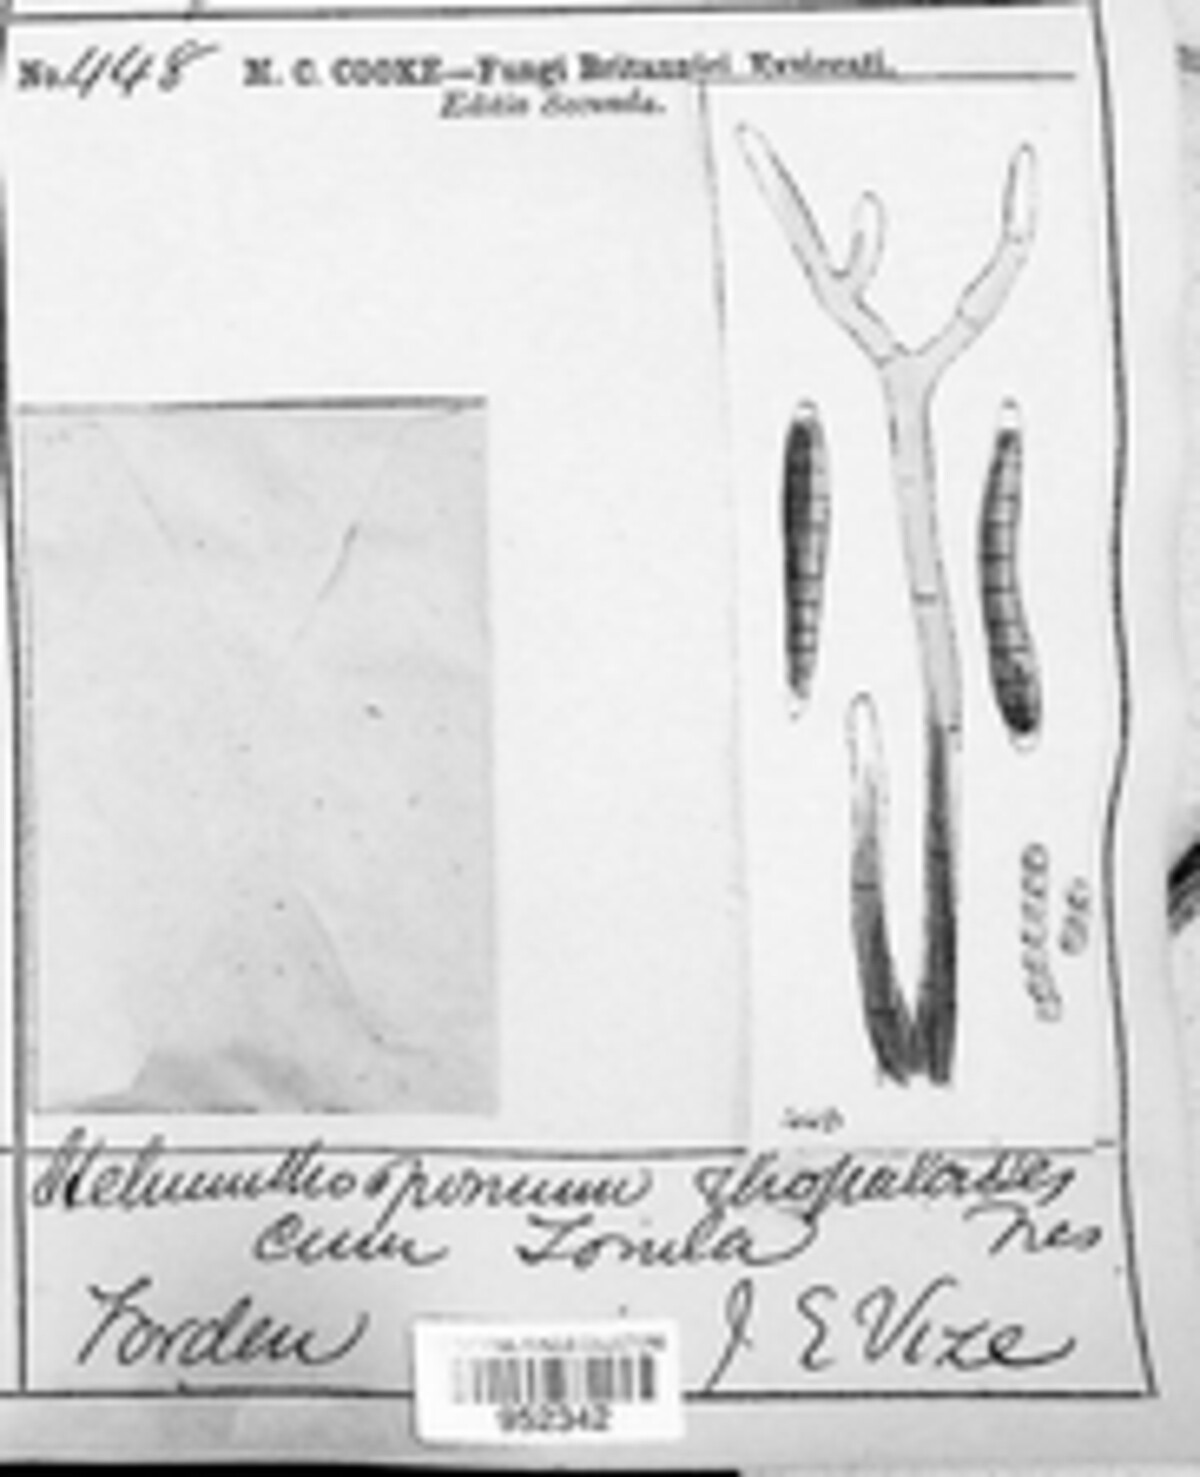 No. 448 M. C. COOKE—Fungi Britannici Exsiccati.
Editio Secunda.
448
Helminthosporium rhopaloides
cum Torula Fres
Forden J. E Vize
952342